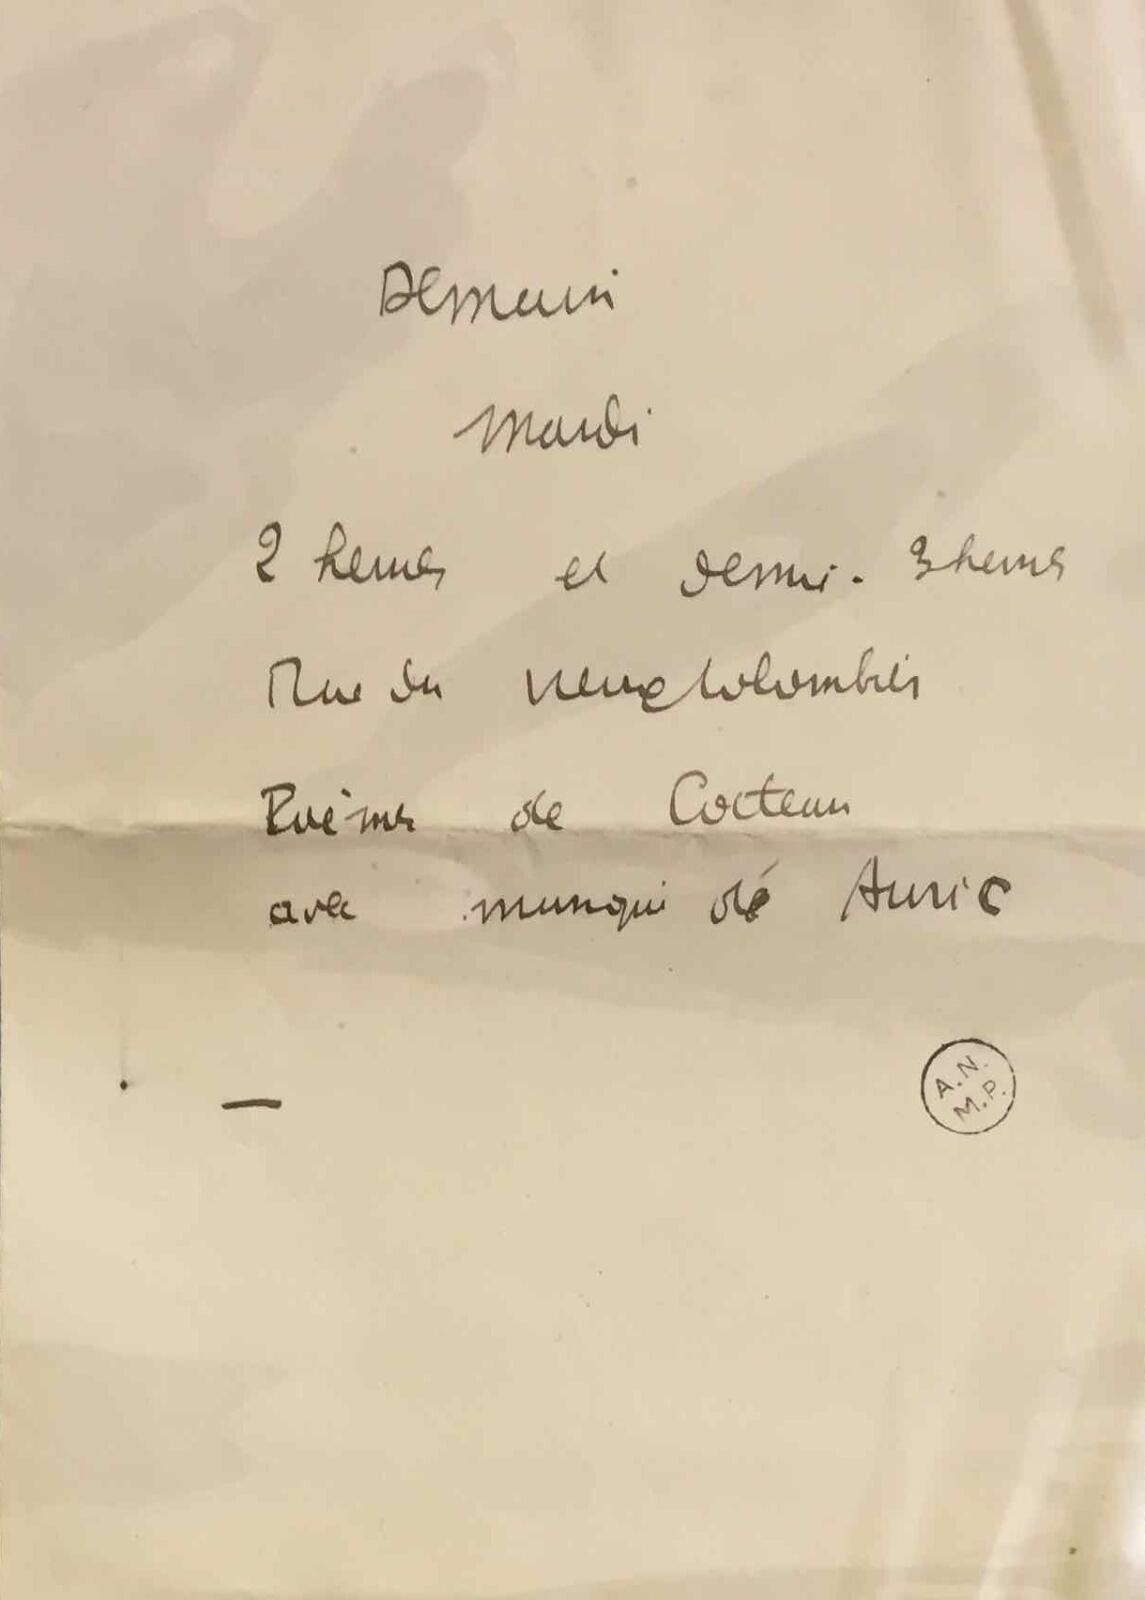 Demain
Mardi
2 heures et demi. 3 heures
Rue du vieux Colombier
Poèmes de Cocteau
avec musique de Auric
A.N.
M.P.